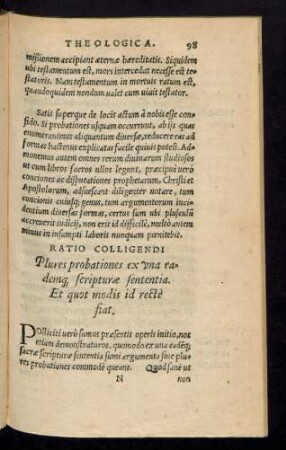 THEOLOGICA. 98
missionem accipiant æternæ hæreditatis. Siquidem
ubi testamentum est, mors intercedat necesse est te-
statoris. Nam testamentum in mortuis ratum est,
quandoquidem nondum valet cum uiuit testator.
Satis superque de locis actum à nobis esse con-
fido. Si probationes usquam occurrunt, ab ijs quas
enumerauimus aliquantum diuersæ, reducere eas ad
formas hactenus explicatas facile quiuis potest. Ad-
monemus autem omnes rerum diuinarum studiosos
ut cum libros sacros ullos legent, præcipuè uerò
conciones ac disputationes prophetarum, Christi et
Apostolorum, adsuescant diligenter notare, tum
concionis cuiusq; genus, tum argumentorum inci-
dentium diuersas formas, certus sum ubi pusculùm
acreuerit iudicij, non erit id difficile, multò autem
minus in insumpti laboris nunquam pœnitebit.
RATIO COLLIGENDI
Plures probationes ex vna ea-
demq; scripturæ sententia.
Et quot modis id rectè
fiat.
POlliciti uerò sumus præsentis operis initio, nos
etiam demonstraturos, quomodo ex una eadẽq;
sacræ scripturæ sententia sumi argumenta siue plu-
res probationes commodè queant. Quod sanè ut
N non